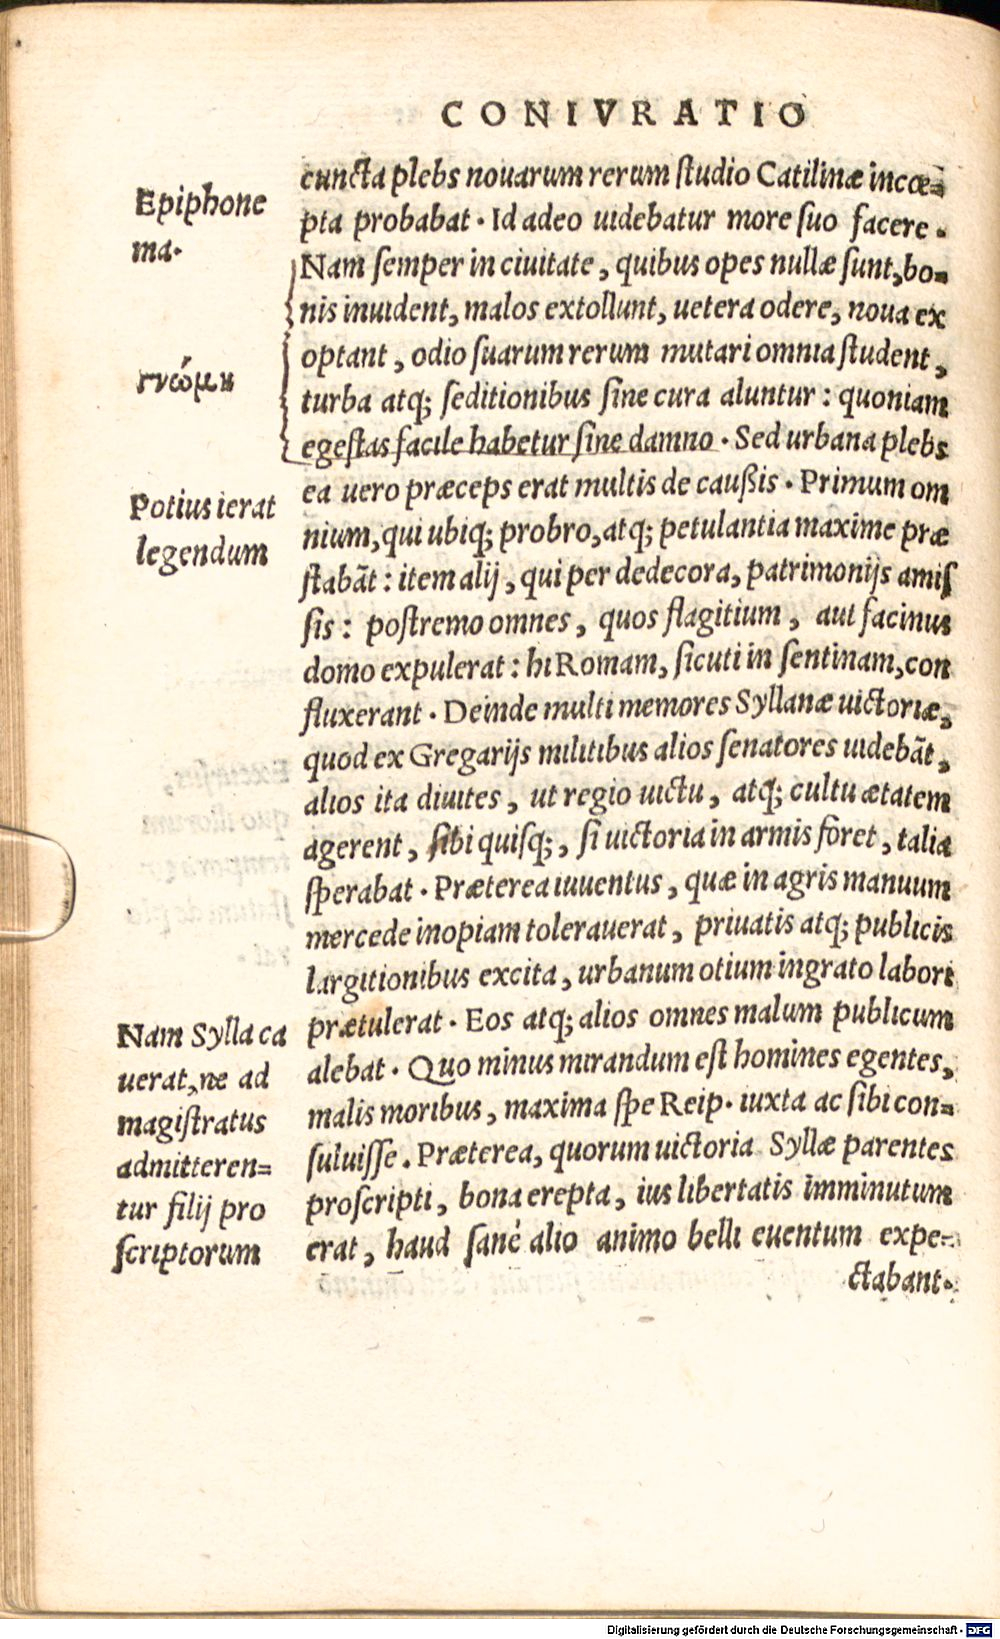 CONIVRATIO
cuncta plebs nouarum rerum ſtudio Catilinæ incœ=
pta probabat. Id adeo uidebatur more ſuo facere.
Nam ſemper in ciuitate, quibus opes nullæ ſunt, bo=
nis inuident, malos extollunt, uetera odere, noua ex
optant, odio ſuarum rerum mutari omnia ſtudent,
turba atq; ſeditionibus ſine cura aluntur: quoniam
egeſtas facile habetur ſine damno. Sed urbana plebs
ea uero præceps erat multis de cauſsis. Primum om
nium, qui ubiq; probro, atq; petulantia maxime præ
ſtabãt: item alij, qui per dedecora, patrimonijs amiſ
ſis: poſtremo omnes, quos flagitium, aut facinus
domo expulerat: hi Romam, ſicuti in ſentinam, con
fluxerant. Deinde multi memores Syllanæ uictoriæ,
quod ex Gregarijs militibus alios ſenatores uidebãt,
alios ita diuites, ut regio uictu, atq; cultu ætatem
agerent, ſibi quiſq;, ſi uictoria in armis foret, talia
ſperabat. Præterea iuuentus, quæ in agris manuum
mercede inopiam tolerauerat, priuatis atq; publicis
largitionibus excita, urbanum otium ingrato labori
prætulerat. Eos atq; alios omnes malum publicum
alebat. Quo minus mirandum eſt homines egentes,
malis moribus, maxima ſpe Reip. iuxta ac ſibi con=
ſuluiſſe. Præterea, quorum uictoria Syllæ parentes
proſcripti, bona erepta, ius libertatis imminutum
erat, haud ſanè alio animo belli euentum expe=
ctabant.
Epiphone
ma.
γνώμη
Potius ierat
legendum
Nam Sylla ca
uerat, ne ad
magiſtratus
admitteren=
tur filij pro
ſcriptorum
Digitalisierung gefördert durch die Deutsche Forschungsgemeinschaft - DFG